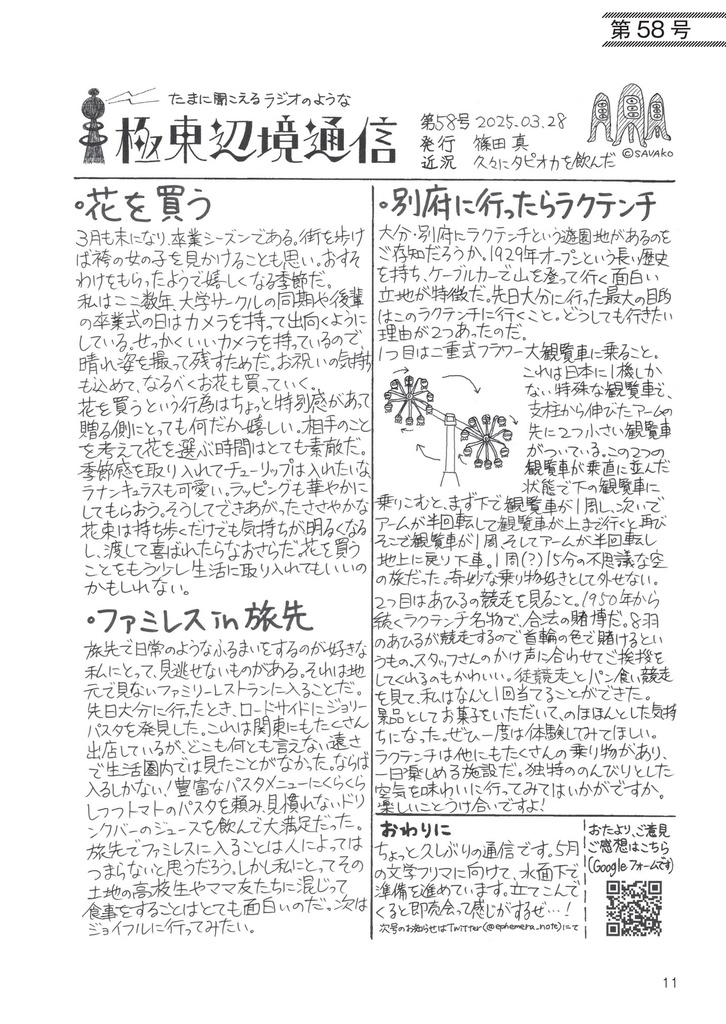 第58号
たまに聞こえるラジオのような
極東辺境通信
第58号 2025.03.28
発行 篠田 真
近況 久々にタピオカを飲んだ
©SAVAKO
•花を買う
3月も末になり、卒業シーズンである。街を歩け
ば袴の女の子を見かけることも思い。おすそ
わけをもらったようで嬉しくなる季節だ。
私はここ数年、大学サークルの同期や後輩
の卒業式の日はカメラを持って出向くように
している。せっかくいいカメラを持っているので、
晴れ姿を撮って残すためだ。お祝いの気持ち
も込めて、なるべくお花も買っていく。
花を買うという行為はちょっと特別感があって
贈る側にとっても何だか嬉しい。相手のこと
を考えて花を選ぶ時間はとても素敵だ。
季節感を取り入れてチューリップは入れたいな
ラナンキュラスも可愛い。ラッピングも華やかに
してもらおう。そうしてできあがったささやかな
花束は持ち歩くだけでも気持ちが明るくなる
し、渡して喜ばれたらなおさらだ。花を買う
ことをもう少し生活に取り入れてもいいの
かもしれない。
•ファミレスin旅先
旅先で日常のようなふるまいをするのが好きな
私にとって、見逃せないものがある。それは地
元で見ないファミリーレストランに入ることだ。
先日大分に行ったとき、ロードサイドにジョリー
パスタを発見した。これは関東にもたくさん
出店しているが、どこも何とも言えない遠さ
で生活圏内では見たことがなかった。ならば
入るしかない!豊富なパスタメニューにくらくら
しつつトマトのパスタを頼み、見慣れないドリ
ンクバーのジュースを飲んで大満足だった。
旅先でファミレスに入ることは人によっては
つまらないと思うだろう。しかし私にとってその
土地の高校生やママ友たちに混じって
食事をすることはとても面白いのだ。次は
ジョイフルに行ってみたい。
•別府に行ったらラクテンチ
大分・別府にラクテンチという遊園地があるのを
ご存知だろうか。1929年オープンという長い歴史
を持ち、ケーブルカーで山を登って行く面白い
立地が特徴だ。先日大分に行った最大の目的
はこのラクテンチに行くこと。どうしても行きたい
理由が2つあったのだ。
1つ目は二重式フラワー大観覧車に乗ること。
これは日本に1機しか
ない特殊な観覧車で、
支柱から伸びたアームの
先に2つ小さい観覧車
がついている。この2つの
観覧車が垂直に並んだ
状態で下の観覧車に
乗りこむと、まず下で観覧車が1周し、次いで
アームが半回転して観覧車が上まで行くと再び
そこで観覧車が1周、そしてアームが半回転し
地上に戻り下車。1周(?)15分の不思議な空
の旅だった。奇妙な乗り物好きとして外せない。
2つ目はあひるの競走を見ること。1950年から
続くラクテンチ名物で、合法の賭博だ。8羽
のあひるが競走するので首輪の色で賭けるとい
うもの。スタッフさんのかけ声に合わせてご挨拶を
してくれるのもかわいい。徒競走とパン食い競走
を見て、私はなんと1回当てることができた。
景品としてお菓子をいただいて、のほほんとした気持
ちになった。ぜひ一度は体験してみてほしい。
ラクテンチは他にもたくさんの乗り物があり、
一日楽しめる施設だ。独特ののんびりとした
空気を味わいに行ってみてはいかがですか。
楽しいことうけ合いですよ!
おわりに
ちょっと久しぶりの通信です。5月
の文学フリマに向けて、水面下で
準備を進めています。立てこんで
くると即売会って感じがするぜ…!
次号のお知らせはTwitter(@ephemera_note)にて
おたより、ご意見
ご感想はこちら
(Googleフォームです)
11